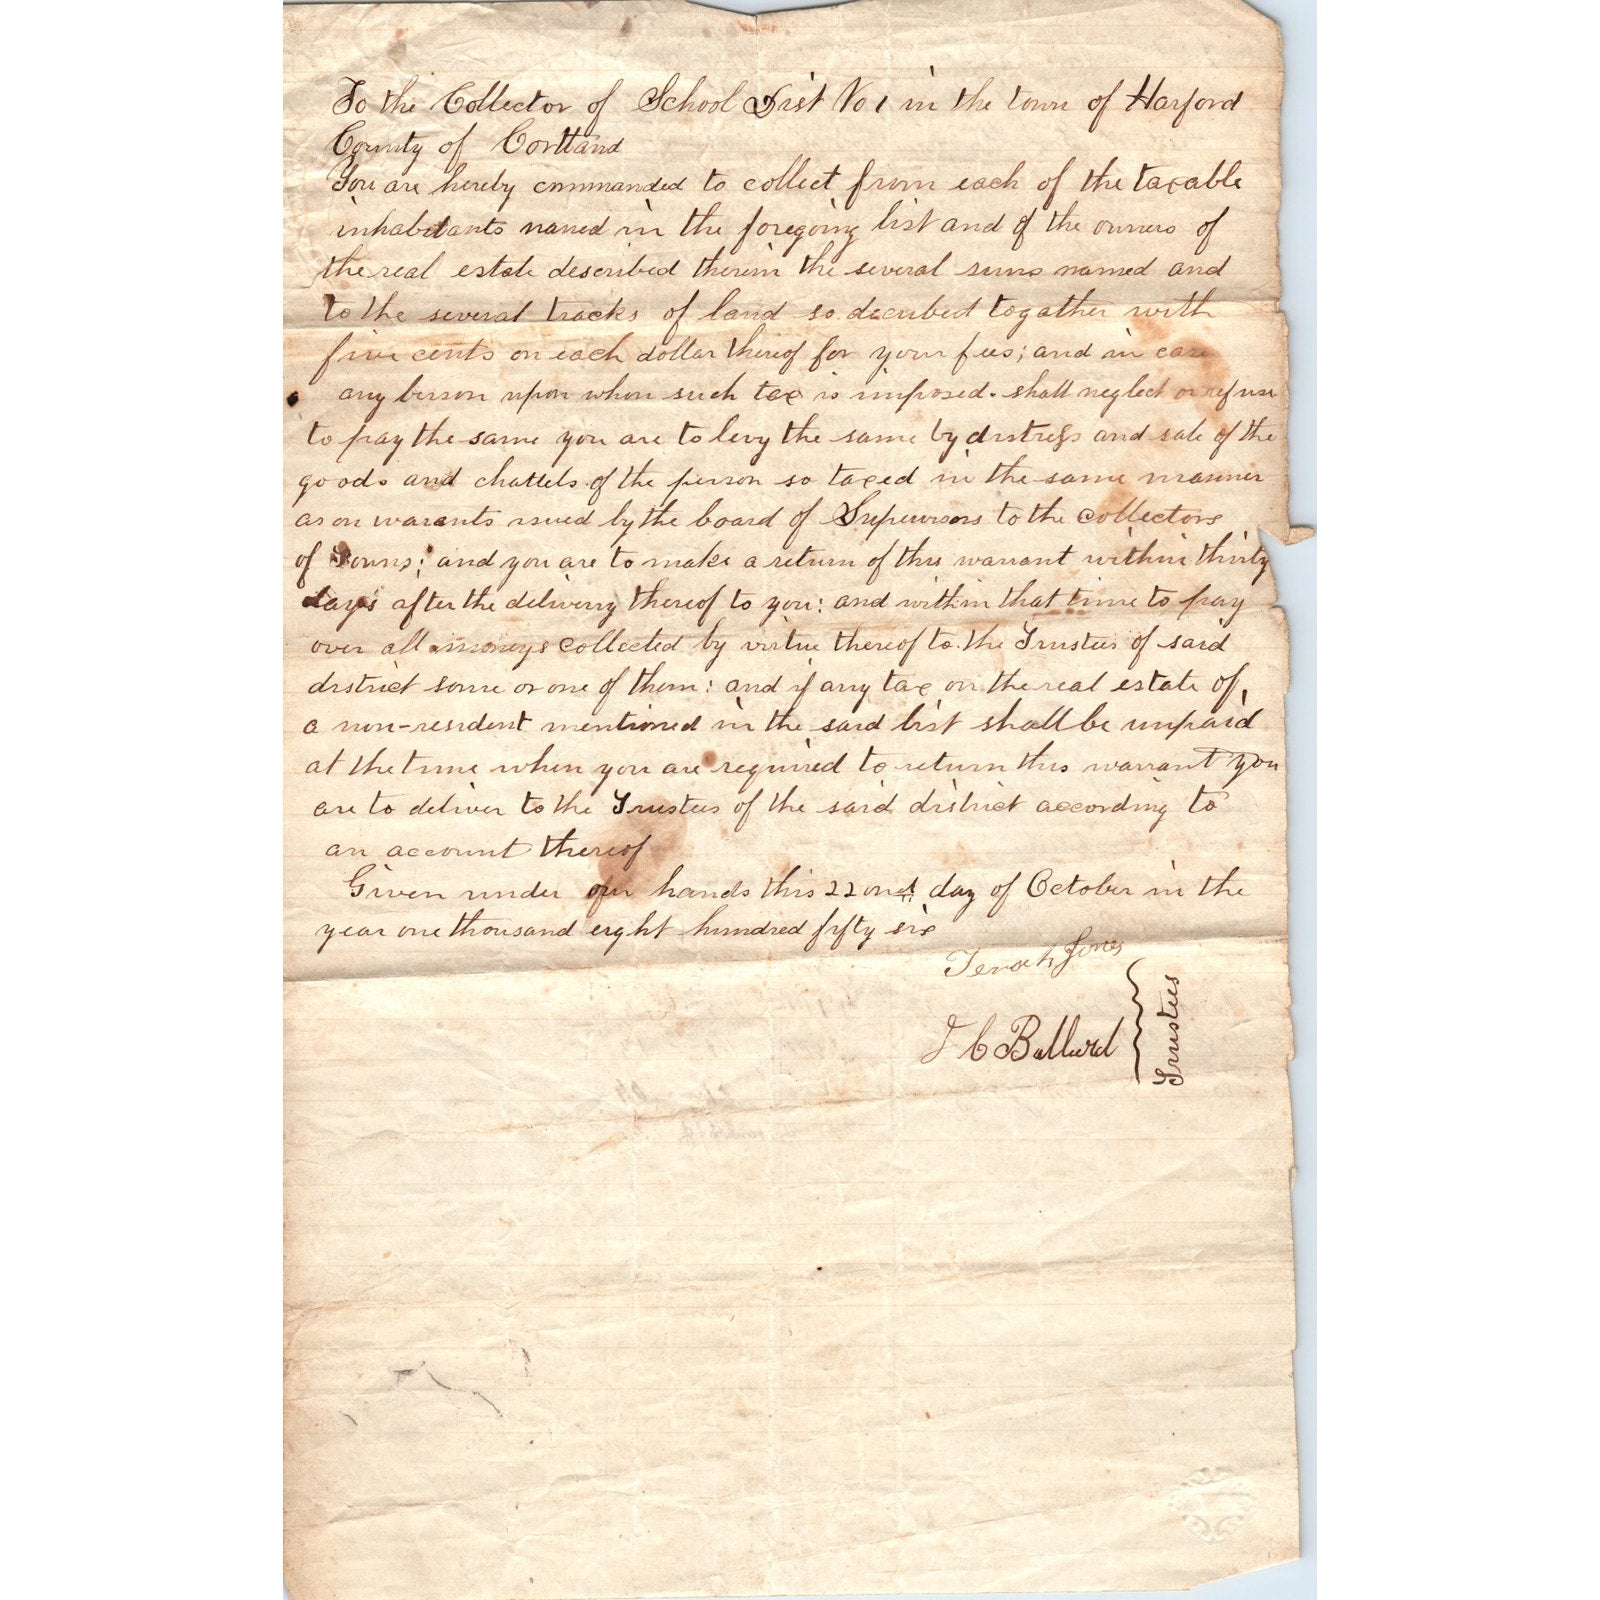 To the Collector of School Dist No 1 in the town of Harford
County of Cortland
You are hereby commanded to collect from each of the taxable
inhabitants named in the foregoing list and of the owners of
the real estate described therein the several sums named and
to the several tracks of land so decribed togather with
five cents on each dollar thereof for your fees; and in case
any person upon whom such tax is imposed. shall neglect or refuse
to pay the same you are to levy the same by distress and sale of the
goods and chattels of the person so taxed in the same manner
as on warants issued by the board of Supervisors to the collectors
of Towns; and you are to make a return of this warrant within thirty
days after the delivery thereof to you: and within that time to pay
over all moneys collected by virtue thereof to the Trustees of said
district some or one of them: and if any tax on the real estate of
a non-resident mentioned in the said list shall be unpaid
at the time when you are required to return this warrant you
are to deliver to the Trustees of the said district according to
an account thereof
Given under our hands this 22ond day of October in the
year one thousand eight hundred fifty six
Jones
J C Ballard
Trustees